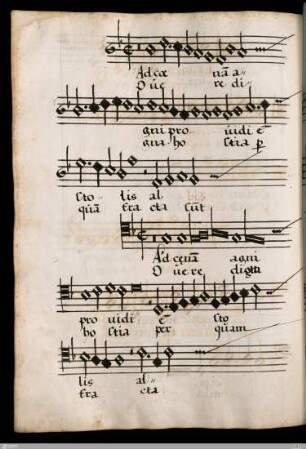 Ad cœ nā a-
O ue re di-
gni pro- uidi ē
gna ho stia p
sto- lis al-
quā fra cta sūt
Ad cenā agni
O uere digna
pro uidi e- sto
ho stia per quam
lis al-
fra cta